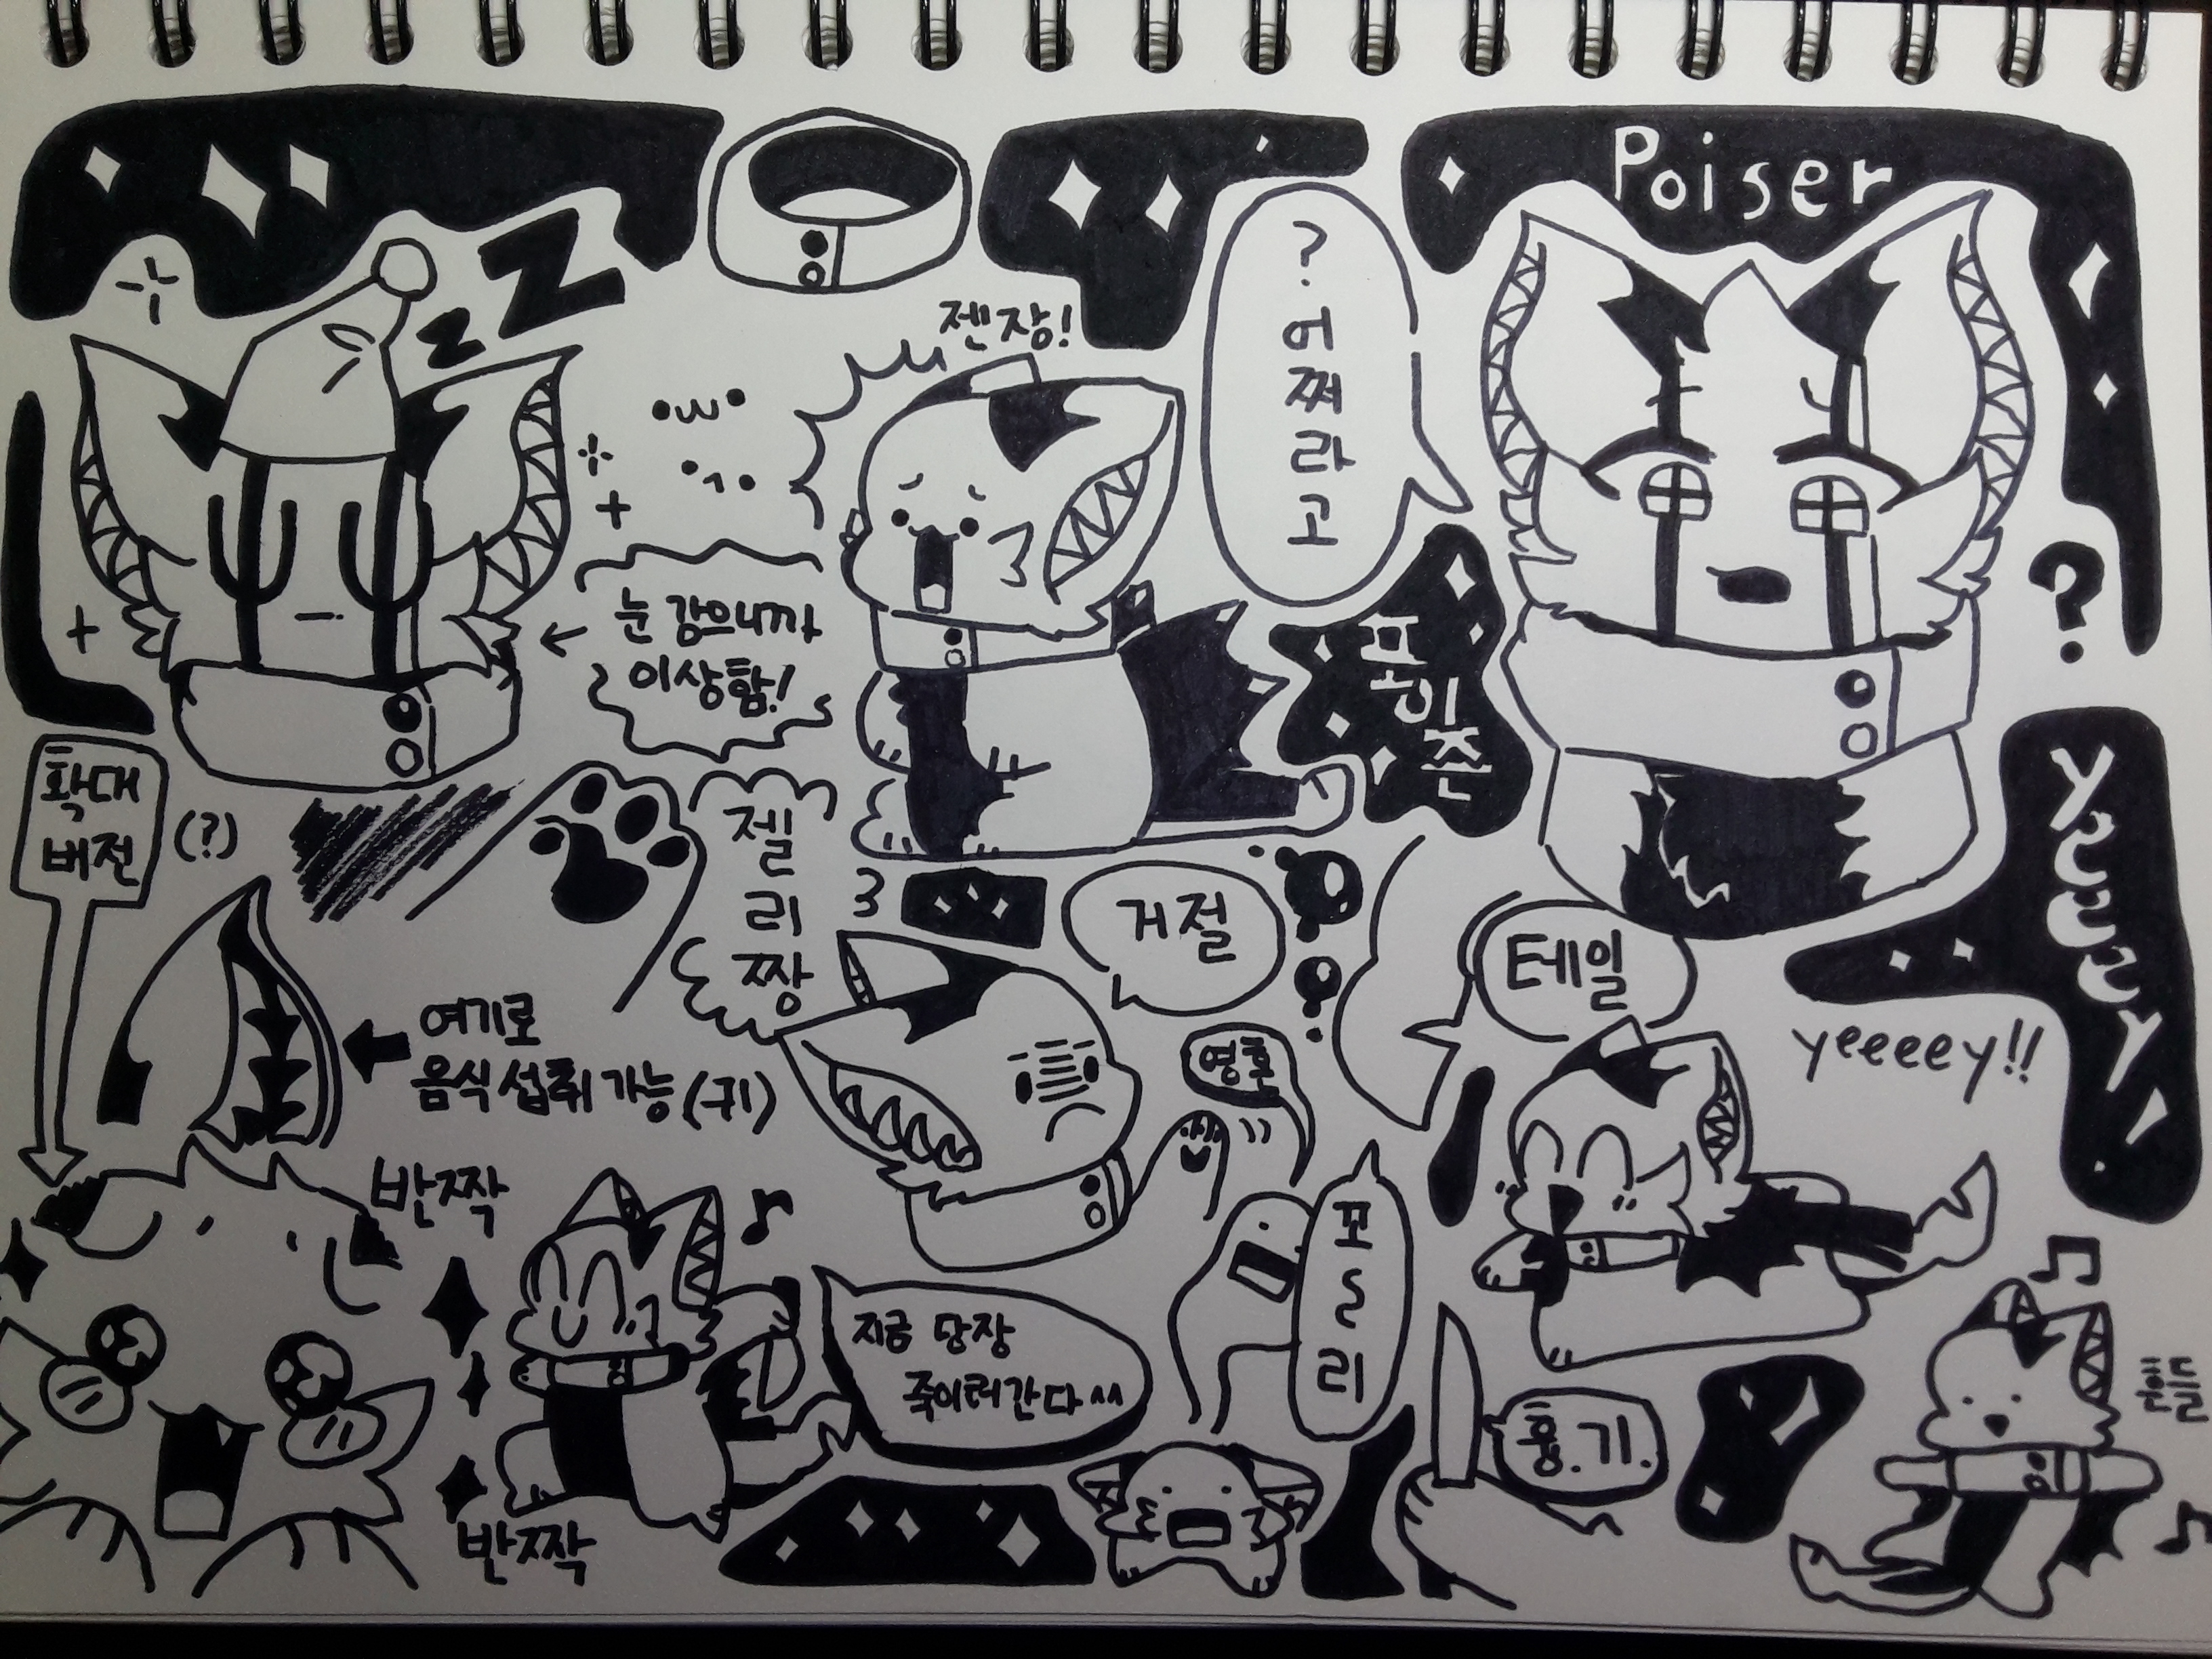 Poiser
zZ
젠장!
?
어
쩌
라
고
눈 감으니까
이상함!
?
확대
버전
(?)
젤
리
짱
거절
테일
yeeey!
yeeeey!!
여기로
음식 섭취 가능 (귀)
영혼
반짝
꼬
리
지금 당장
죽이러간다^^
흉.기.
흔들
반짝